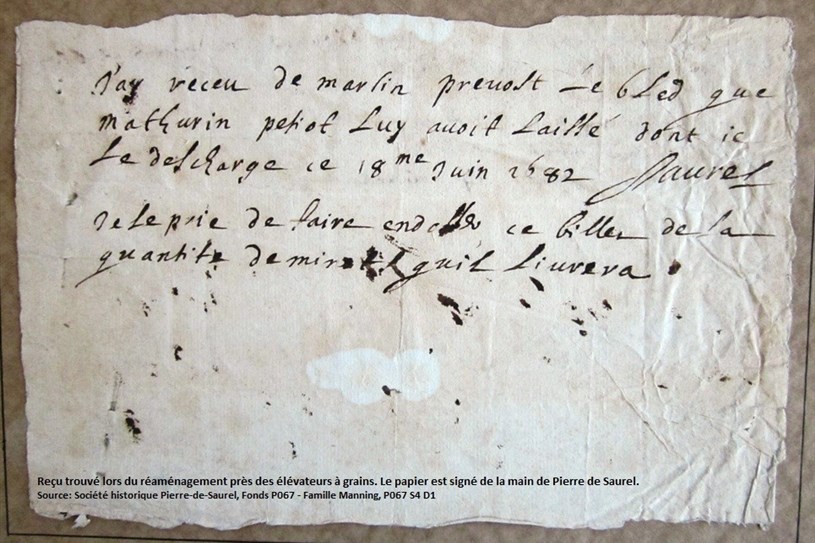 J'ay receu de martin prevost Le bLed que
mathurin petiot Luy avoit Laissé dont ie
Le descharge ce 18me Juin 1682 Saurel
Je Le prie de faire ce billet de La
quantite de quil Livrera
Reçu trouvé lors du réaménagement près des élévateurs à grains. Le papier est signé de la main de Pierre de Saurel.
Source: Société historique Pierre-de-Saurel, Fonds P067 - Famille Manning, P067 S4 D1